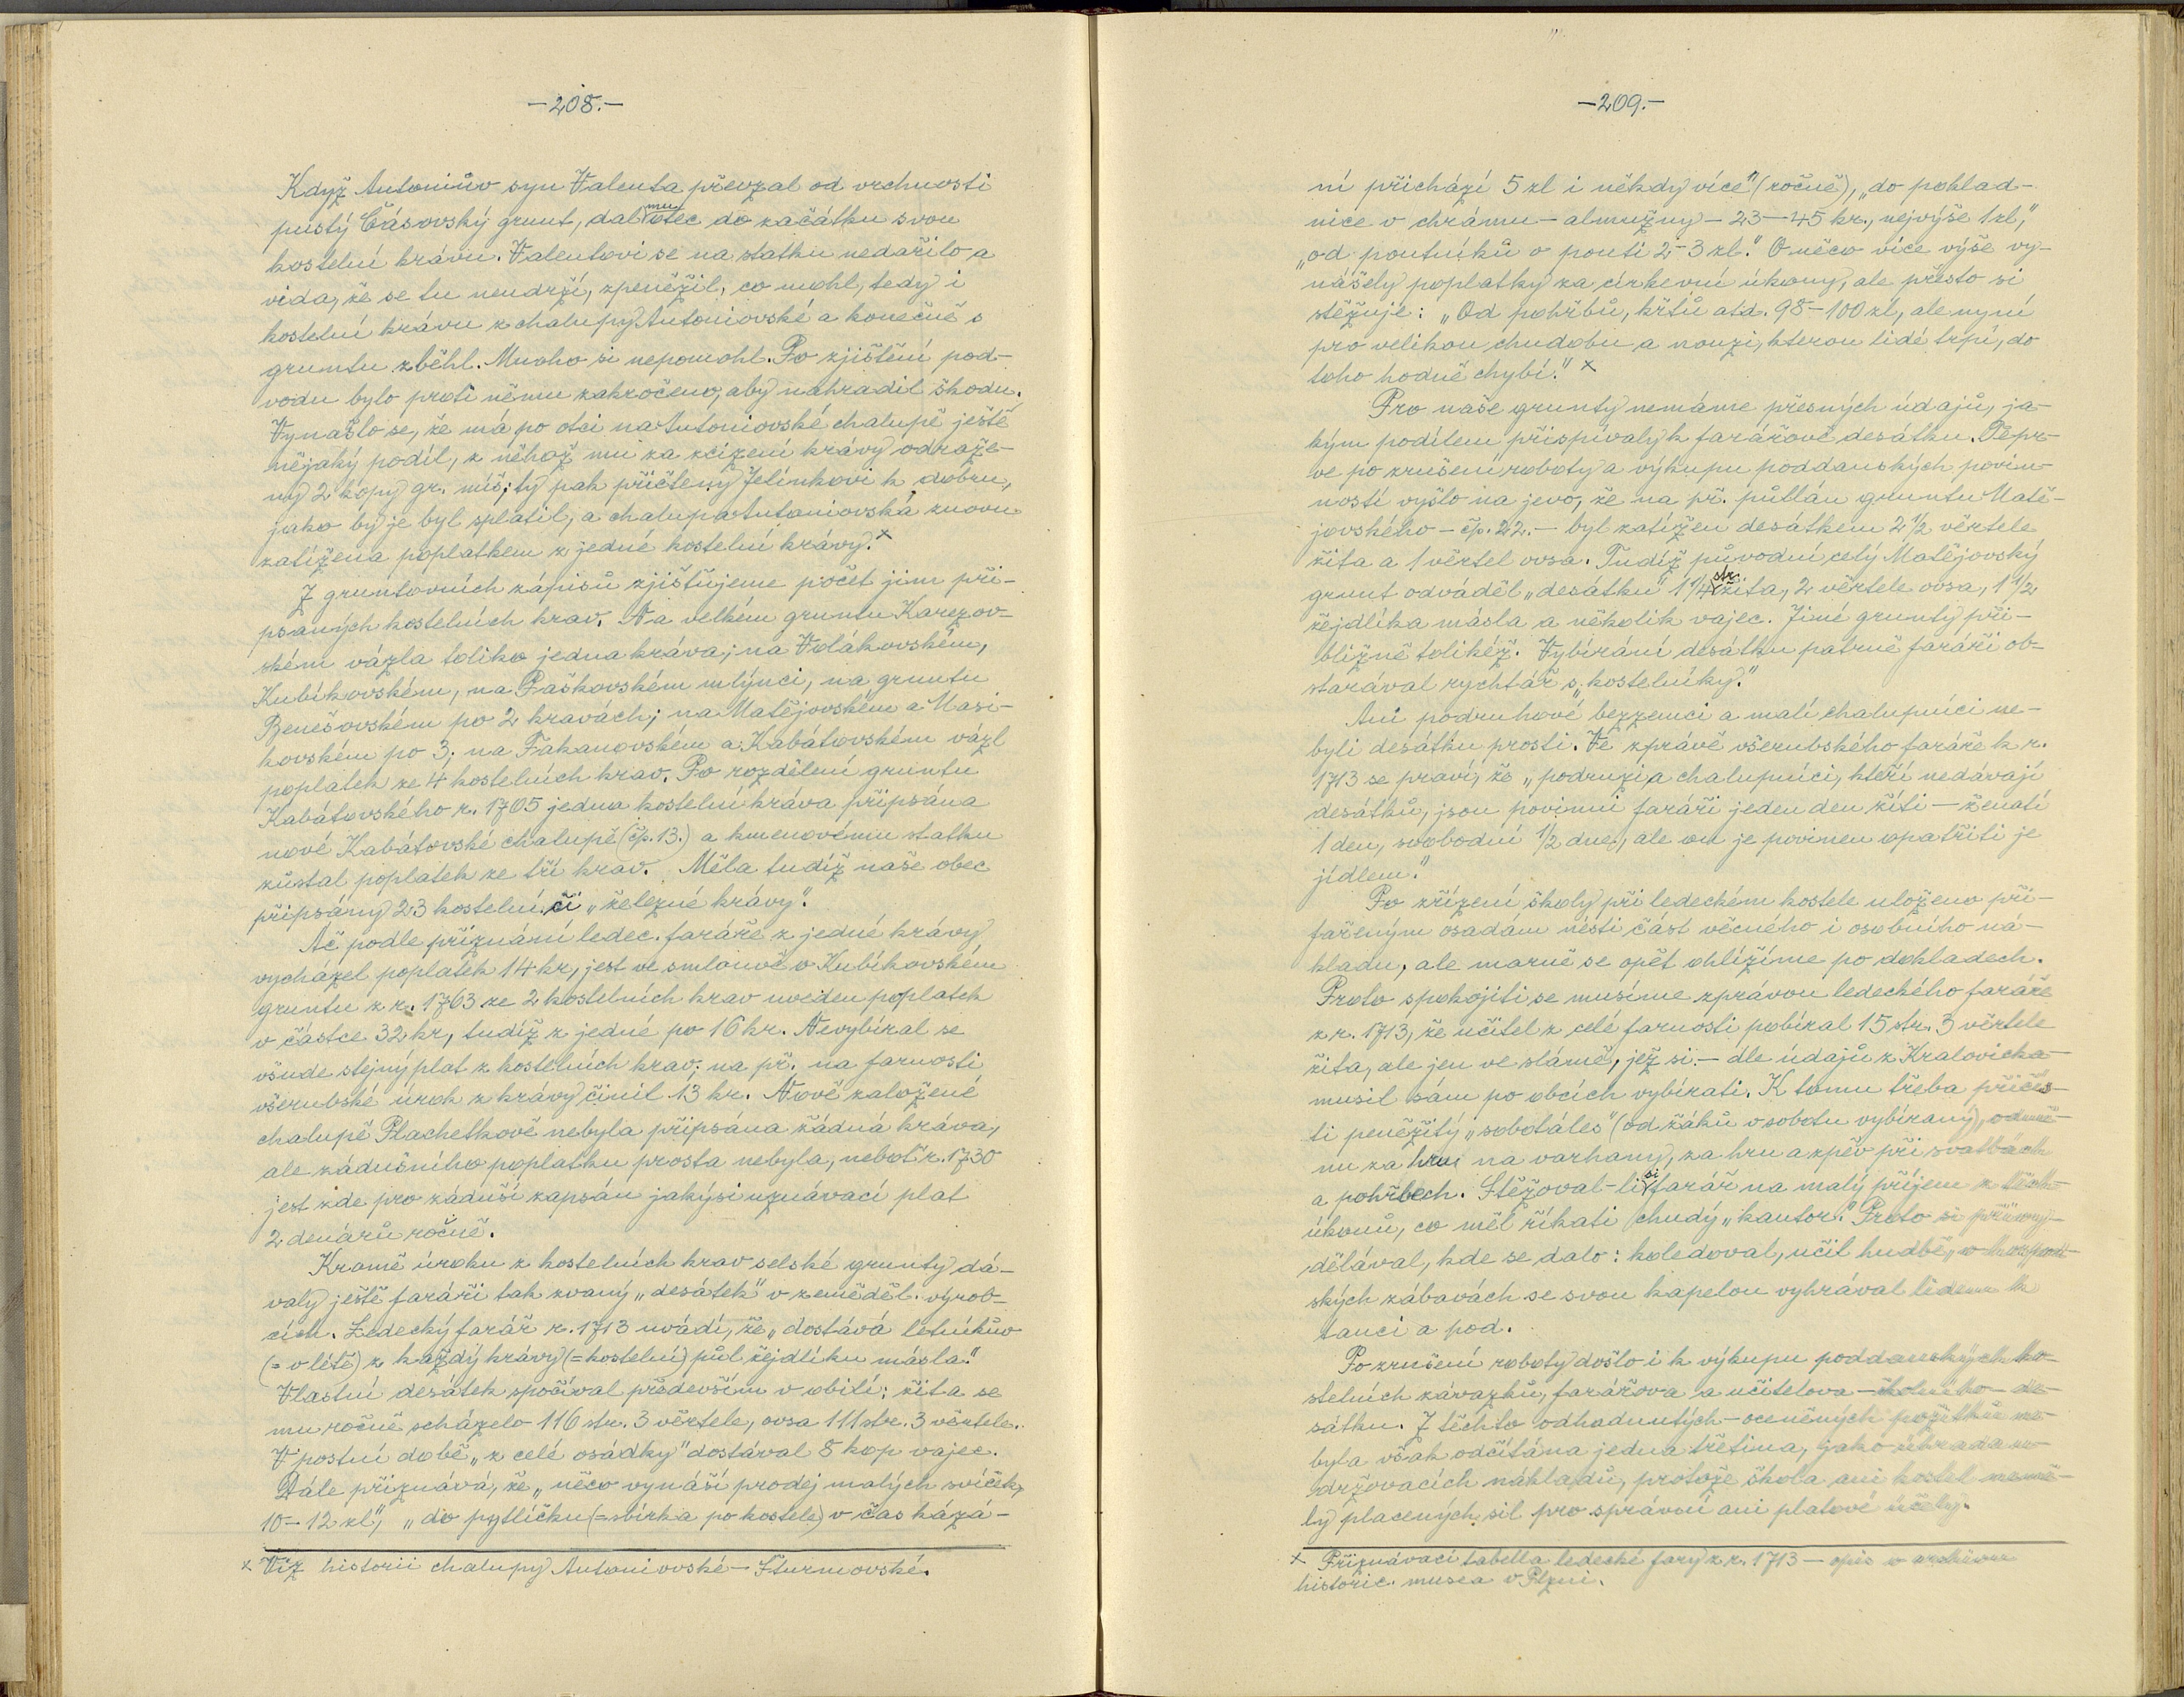 -208.-
Když Antoniův syn Valenta převzal od vrchnosti
pustý Čásovský grunt, dal mu otec do začátku svou
kostelní krávu. Valentovi se na statku nedařilo a
vida, že se tu neudrží, zpeněžil, co mohl, tedy i
kostelní krávu z chalupy Antoniovské a konečně s
gruntu zběhl. Mnoho si nepomohl. Po zjištění pod-
vodu bylo proti němu zakročeno, aby nahradil škodu.
Vynašlo se, že má po otci na Antoniovské chalupě ještě
nějaký podíl, z něhož mu za zcizení krávy odraže-
ny 2 kopy gr. míš; ty pak přičteny Jelínkovi k dobru,
jako by je byl splatil, a chalupa Antoniovská znovu
zatížena poplatkem z jedné kostelní krávy.x
Z gruntovních zápisů zjišťujeme počet jim při-
psaných kostelních krav. Na velkém gruntu Karezov-
ském vázla toliko jedna kráva; na Volákovském,
Kubíkovském, na Paškovském mlýnci, na gruntu
Benešovském po 2 kravách; na Matějovském a Masi-
kovském po 3; na Fakanovském a Kabátovském vázl
poplatek ze 4 kostelních krav. Po rozdělení gruntu
Kabátovského r. 1705 jedna kostelní kráva připsána
nové Kabátovské chalupě (čp. 13.) a kmenovému statku
zůstal poplatek ze tří krav. Měla tudíž naše obec
připsány 23 kostelní či „železné krávy".
Ač podle přiznání ledec. faráře z jedné krávy
vycházel poplatek 14 kr, jest ve smlouvě o Kubíkovském
gruntu z r. 1763 ze 2 kostelních krav uveden poplatek
v částce 32 kr, tudíž z jedné po 16 kr. Nevybíral se
všude stejný plat z kostelních krav; na př. na farnosti
všerubské úrok z krávy činil 13 kr. Nově založené
chalupě Plachetkově nebyla připsána žádná kráva,
ale zádušního poplatku prosta nebyla, neboť r. 1730
jest zde pro záduší zapsán jakýsi uznávací plat
2 denárů ročně.
Kromě úroku z kostelních krav selské grunty dá-
valy ještě faráři tak zvaný „desátek" v zeměděl. výrob-
cích. Ledecký farář r. 1713 uvádí, že „dostává letníkův
(= v létě) z každý krávy (= kostelní) půl žejdlíku másla."
Vlastní desátek spočíval především v obilí: žita se
mu ročně scházelo 116 str. 3 věrtele, ovsa 111 str. 3 věrtele.
V postní době „z celé osádky" dostával 8 kop vajec.
Dále přiznává, že „něco vynáší prodej malých svíček,
10-12 zl", „do pytlíčku (= sbírka po kostele) v čas kázá-
x Viz historii chalupy Antoniovské - Šturmovské.
-209.-
ní přichází 5 zl i někdy více" (ročně), „do poklad-
nice v chrámu - almužny - 23-45 kr., nejvýše 1 zl,"
„od poutníků o pouti 2-3 zl." O něco více výše vy-
nášely poplatky za církevní úkony, ale přesto si
stěžuje: „Od pohřbů, křtů atd. 98-100 zl, ale nyní
pro velikou chudobu a nouzi, kterou lidé trpí, do
toho hodně chybí." x
Pro naše grunty nemáme přesných údajů, ja-
kým podílem přispívaly k farářově desátku. Tepr-
ve po zrušení roboty a výkupu poddanských povin-
ností vyšlo na jevo, že na př. půllán gruntu Matě-
jovského - čp. 22. - byl zatížen desátkem 2 1/2 věrtele
žita a 1 věrtel ovsa. Tudíž původní celý Matějovský
grunt odváděl „desátku" 1 1/4 str. žita, 2 věrtele ovsa, 1 1/2
žejdlíka másla a několik vajec. Jiné grunty při-
bližně tolikéž. Vybírání desátku patrně faráři ob-
starával rychtář s „kostelníky."
Ani podruhové bezzemci a malí chalupníci ne-
byli desátku prosti. Ve zprávě všerubského faráře k r.
1713 se praví, že „podruzi a chalupníci, kteří nedávají
desátků, jsou povinni faráři jeden den žíti - ženatí
1 den, svobodní 1/2 dne, ale on je povinen opatřiti je
jídlem."
Po zřízení školy při ledeckém kostele uloženo při-
fařeným osadám nésti část věcného i osobního ná-
kladu, ale marně se opět ohlížíme po dokladech.
Proto spokojiti se musíme zprávou ledeckého faráře
z r. 1713, že učitel z celé farnosti pobíral 15 str. 3 věrtele
žita, ale jen ve slámě, jež si - dle údajů z Kralovicka -
musil sám po obcích vybírati. K tomu třeba přičís-
ti peněžitý „sobotáles" (od žáků v sobotu vybíraný), odmě-
nu za hru na varhany, za hru a zpěv při svatbách
a pohřbech. Stěžoval-li si farář na malý příjem z těch
úkonů, co měl říkati chudý „kantor." Proto si přivy-
dělával, kde se dalo: koledoval, učil hudbě,
ských zábavách se svou kapelou vyhrával lidem k
tanci a pod.
Po zrušení roboty došlo i k výkupu poddanských ko-
stelních závazků, farářova a učitelova - školního - de-
sátku. Z těchto odhadnutých - oceněných požitků
byla však odčítána jedna třetina, jako úhrada
držovacích nákladů, protože škola ani kostel nemě-
ly placených sil pro správní ani platové účely.
x Přiznávací tabella ledecké fary z r. 1713 - opis v archivu
historic. musea v Plzni.